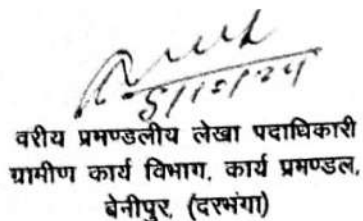 वरीय प्रमण्डलीय लेखा पदाधिकारी
ग्रामीण कार्य विभाग, कार्य प्रमण्डल,
बेनीपुर, (दरभंगा)